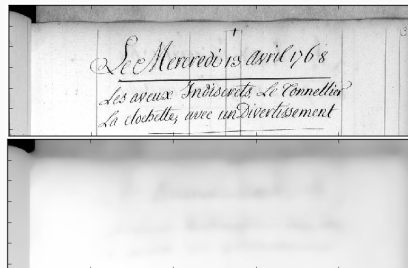 Le Mercredi 13 Avril 1768
Les aveux Indiscrets, Le Connellier
La clochette, avec un Divertissement